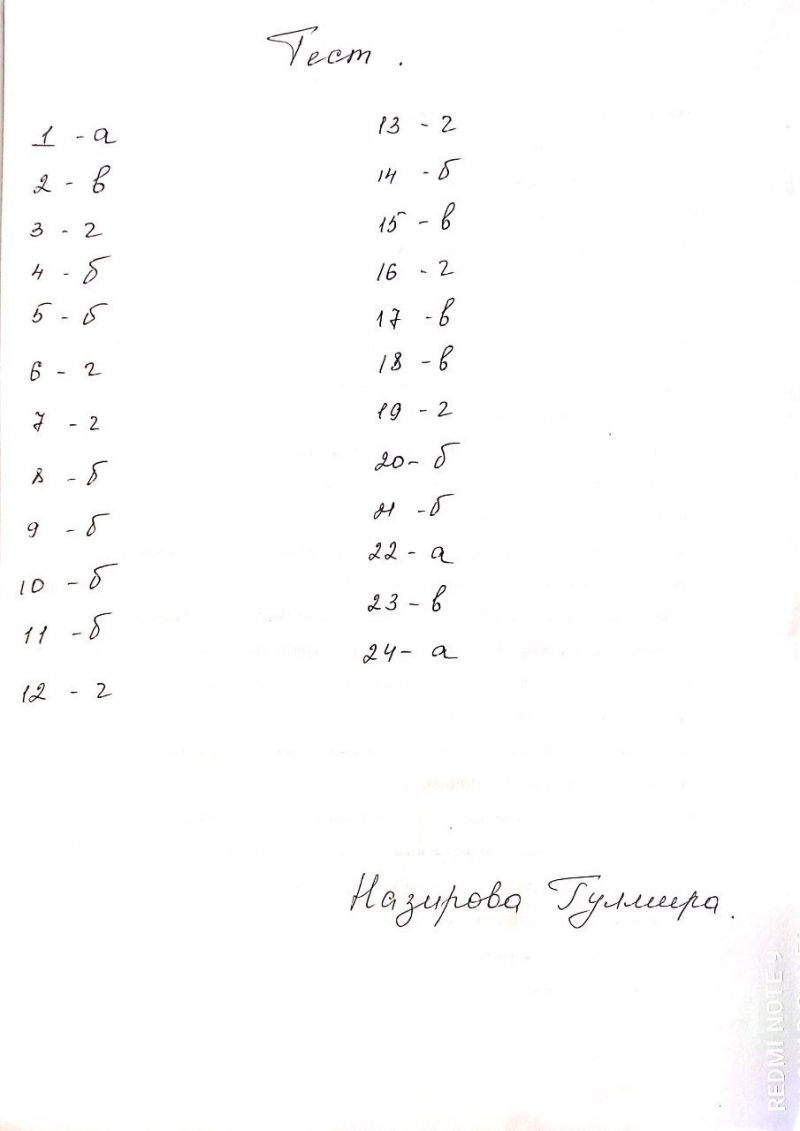 Тест.
1 - а
2 - в
3 - г
4 - б
5 - б
6 - г
7 - г
8 - б
9 - б
10 - б
11 - б
12 - г
13 - г
14 - б
15 - в
16 - г
17 - в
18 - в
19 - г
20 - б
21 - б
22 - а
23 - в
24 - а
Назирова Гулмира.
REDMI NOTE 9